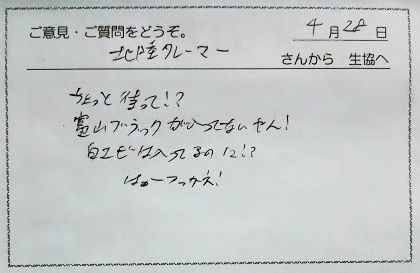 ご意見・ご質問をどうぞ。 4月28日
北陸クレーマー さんから 生協へ
ちょっと待って!?
富山ブラックが入ってないやん!
白エビは入ってるのに!?
はぁーつっかえ!